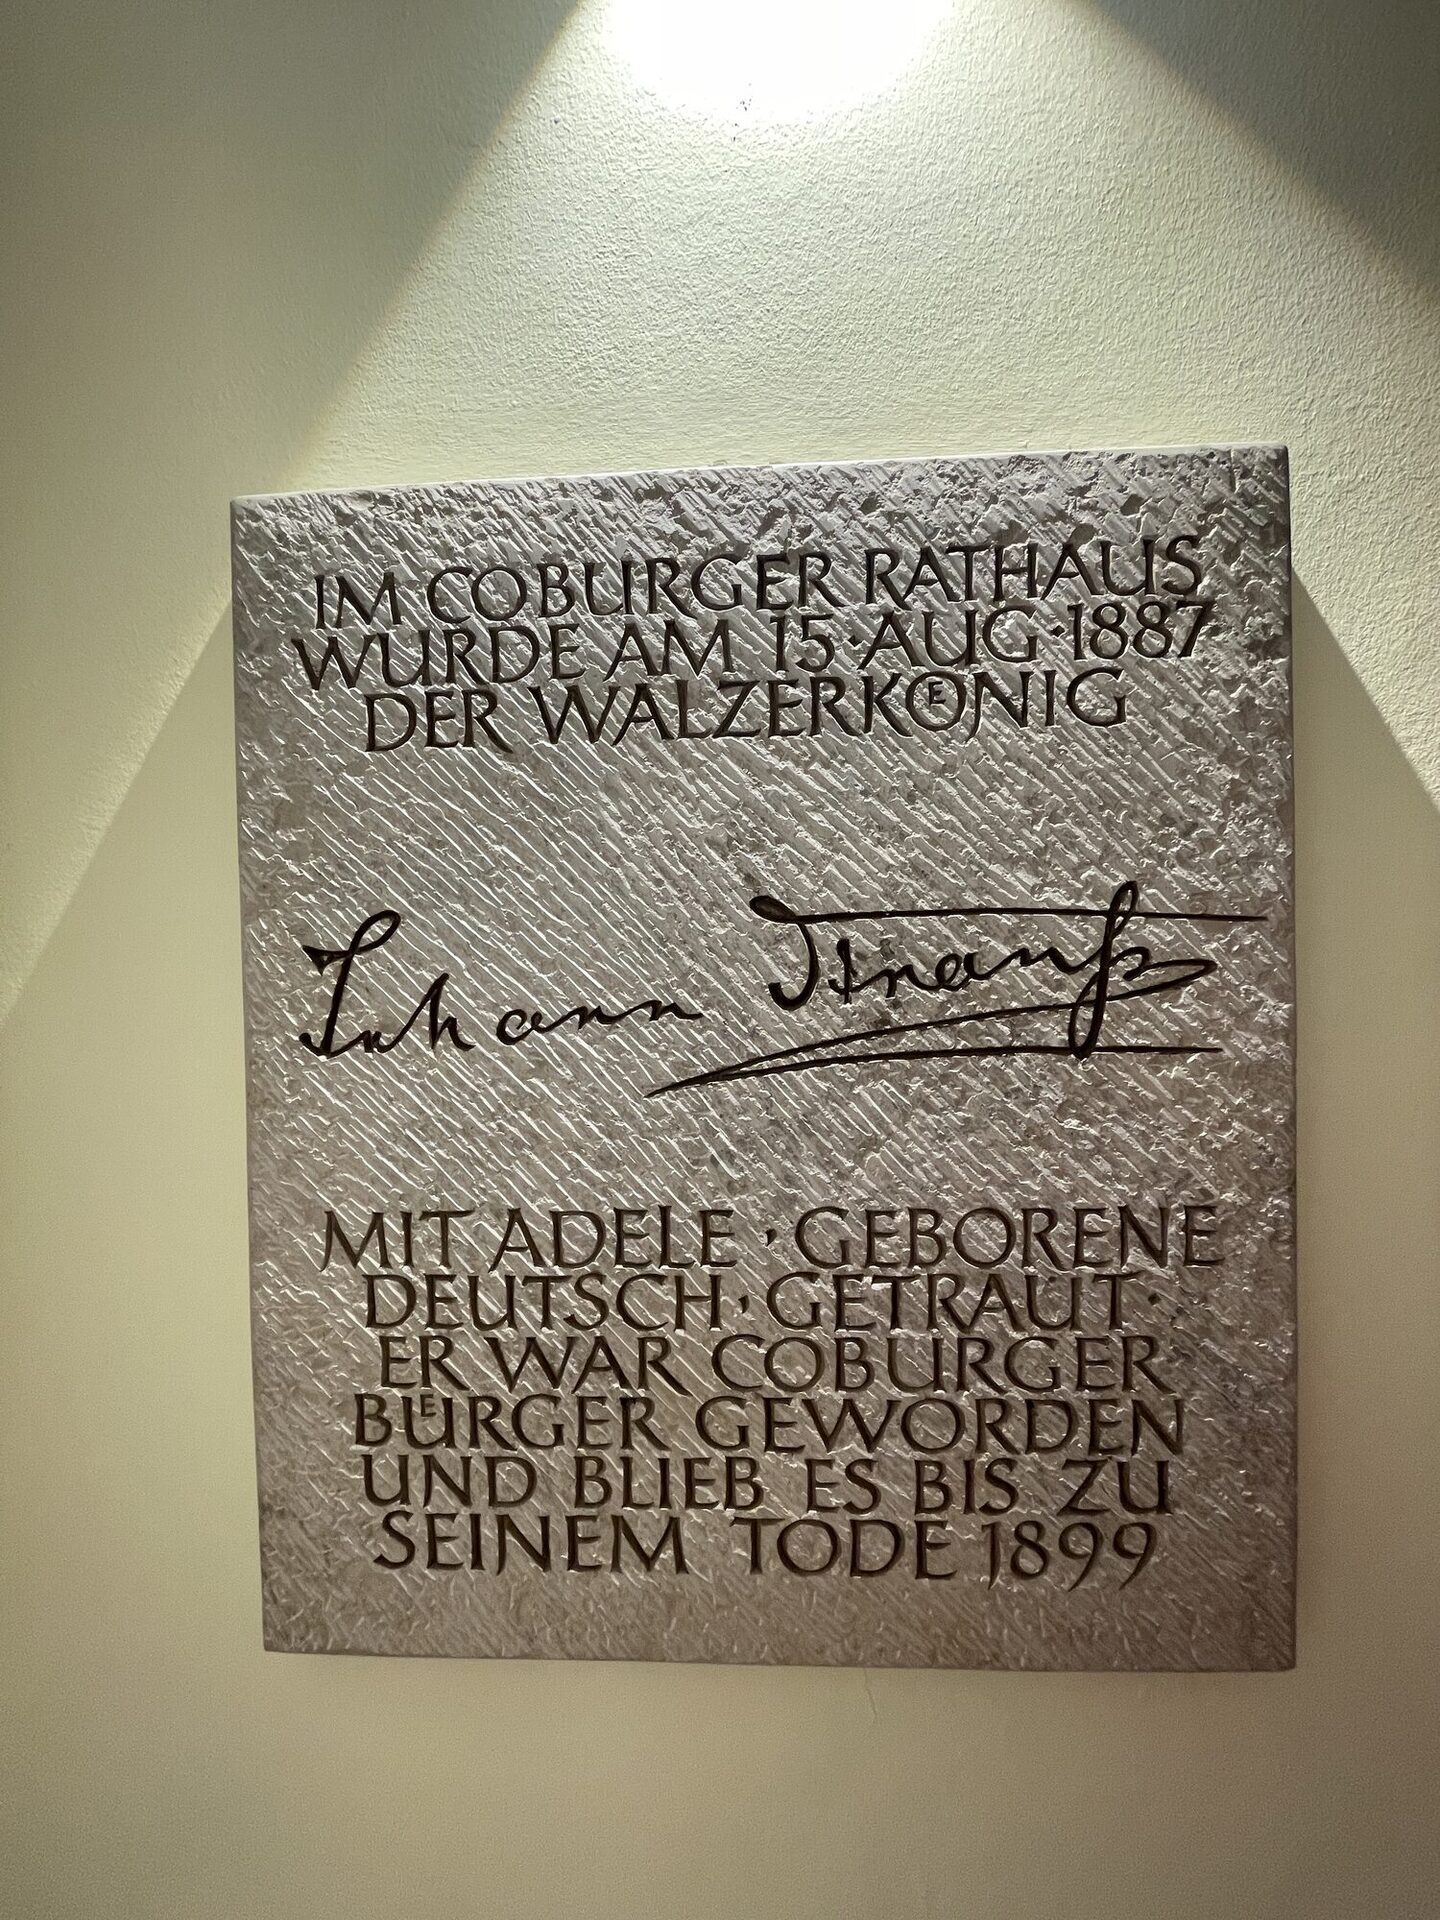 IM COBURGER RATHAUS
WURDE AM 15·AUG·1887
DER WALZERKOENIG
Johann Strauß
MIT ADELE, GEBORENE
DEUTSCH, GETRAUT·
ER WAR COBURGER
BUERGER GEWORDEN
UND BLIEB ES BIS ZU
SEINEM TODE 1899